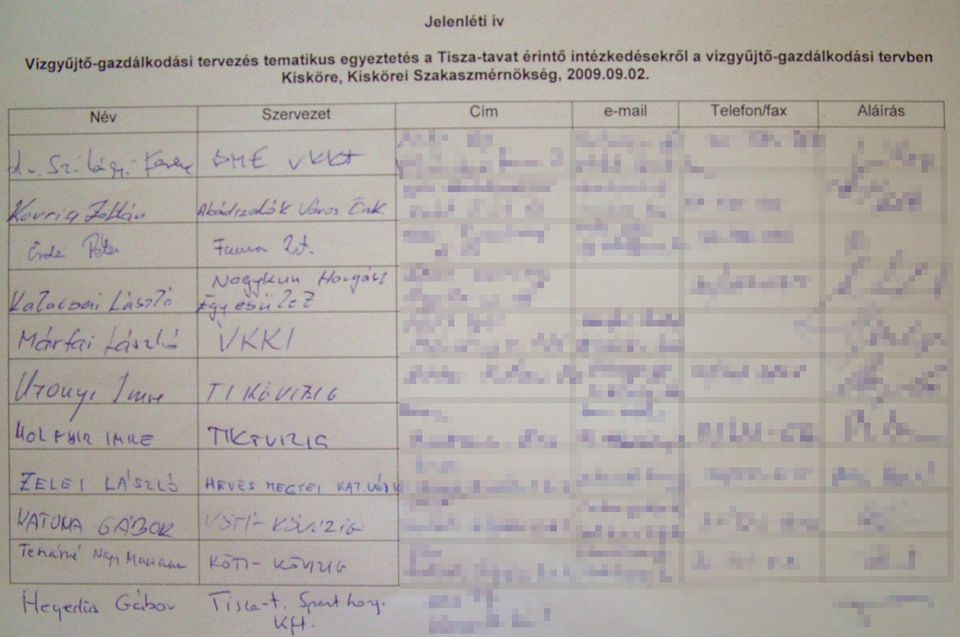 Jelenléti ív
Vízgyűjtő-gazdálkodási tervezés tematikus egyeztetés a Tisza-tavat érintő intézkedésekről a vízgyűjtő-gazdálkodási tervben
Kisköre, Kiskörei Szakaszmérnökség, 2009.09.02.
Név Szervezet Cím e-mail Telefon/fax Aláírás
dr. Szilágyi Ferenc BME VKKT
Kovrig Zoltán Abádszalók Város Önk
Péter Fauna
László Nagykun Horgász
Egyesület
Márfai László VKKI
Uzonyi Imre TIKÖVIZIG
IMRE TIKÖVIZIG
ZELEI LÁSZLÓ HEVES MEGYEI KAT.VÉD.
KATONA GÁBOR KÖTI-KÖVIZIG
Nagy Mariann KÖTI-KÖVIZIG
Hegedüs Gábor Tisza-t. Sporthorg.
Kft.